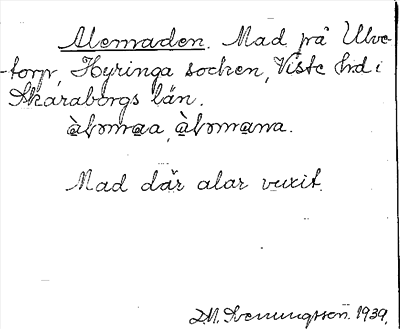 Alemaden. Mad på Ulve-
torp, Hyringa socken, Viste hrd i
Skaraborgs län.
Mad där alar vuxit.
Svenungsson. 1939.